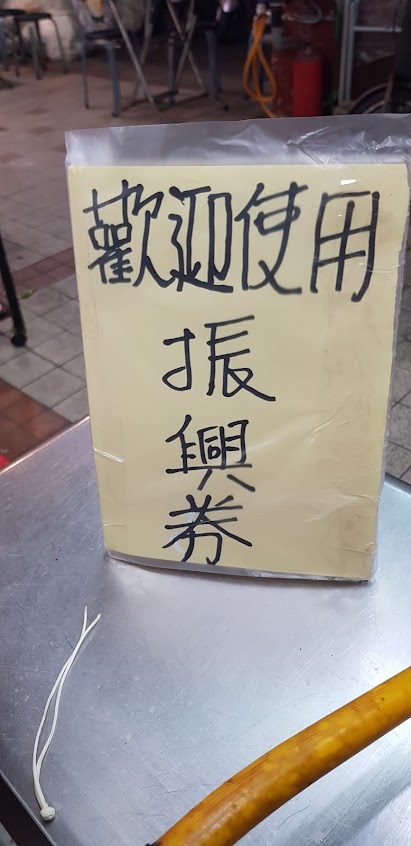 歡迎使用
振
興
券